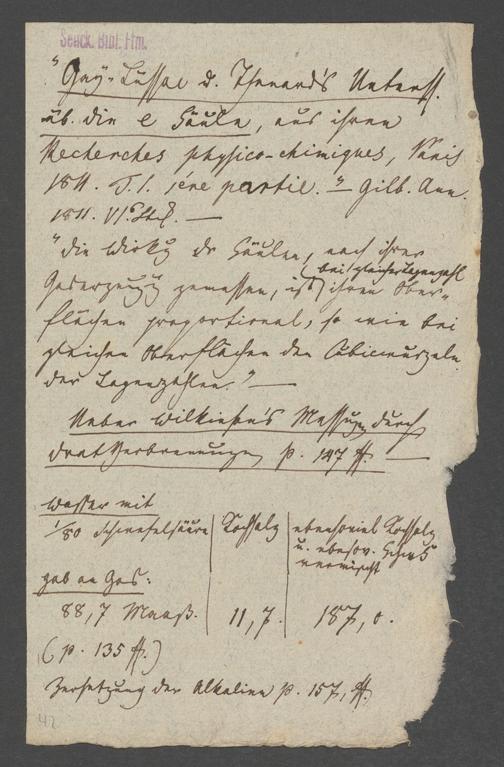 Senck. Bibl. Ffm.
"Gay-Lussac u. Thenard's Unterss.
üb. die e Säule, aus ihren
Recherches physico-chimiques, Paris
1811. T. I. 1ère partie." – Gilb. Ann.
1811. VI. St. –
"die Wirkg der Säulen, nach ihrer
(bei gleicher Lagenzahl
Gaserzeugg gemessen, ist) ihren Ober-
flächen proportional, so wie bei
gleichen Oberflächen den Cubicwurzeln
der Lagenzahlen." –
Ueber Wilkinson's Messungen durch
Dratverbrennungen p. 147 ff. –
Wasser mit
1/80 Schwefelsäure | Kochsalz | ebensoviel Kochsalz
u. ebensov. Schws
vermischt
gab an Gas:
88,7 Maaß. | 11,7. | 187,0.
(p. 135 ff.)
Zersetzung der Alkalien p. 157, ff.
42